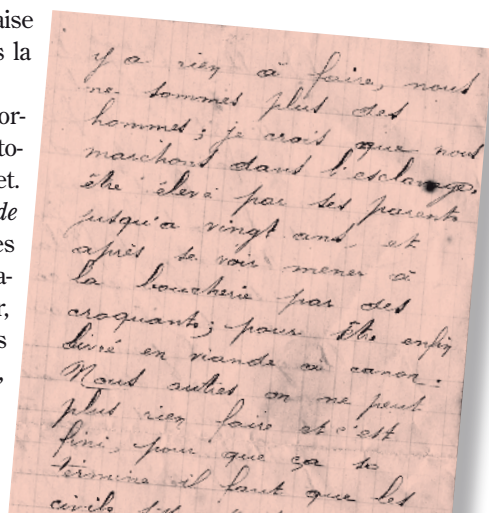 aise
s la
or-
to-
et.
de
es
a-
r,
s
,
y a rien à faire, nous
ne sommes plus des
hommes ; je crois que nous
marchons dans l'esclavage,
être élevé par ses parents
jusqu'a vingt ans, et
après se voir mener à
la boucherie par des
croquants ; pour être enfin
livré en viande à canon.
Nous autres on ne peut
plus rien faire et c'est
fini, pour que ça se
termine il faut que les
civils